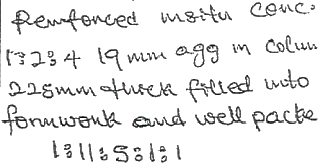 Reinforced insitu conc.
1:2:4 19 mm agg in colum
225mm thick filled into
formwork and well packe
1:11:5:1:1